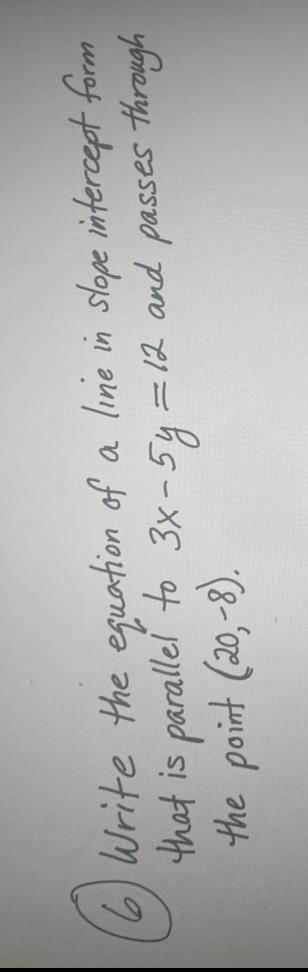 6 Write the equation of a line in slope intercept form
that is parallel to 3x-5y=12 and passes through
the point (20,-8).